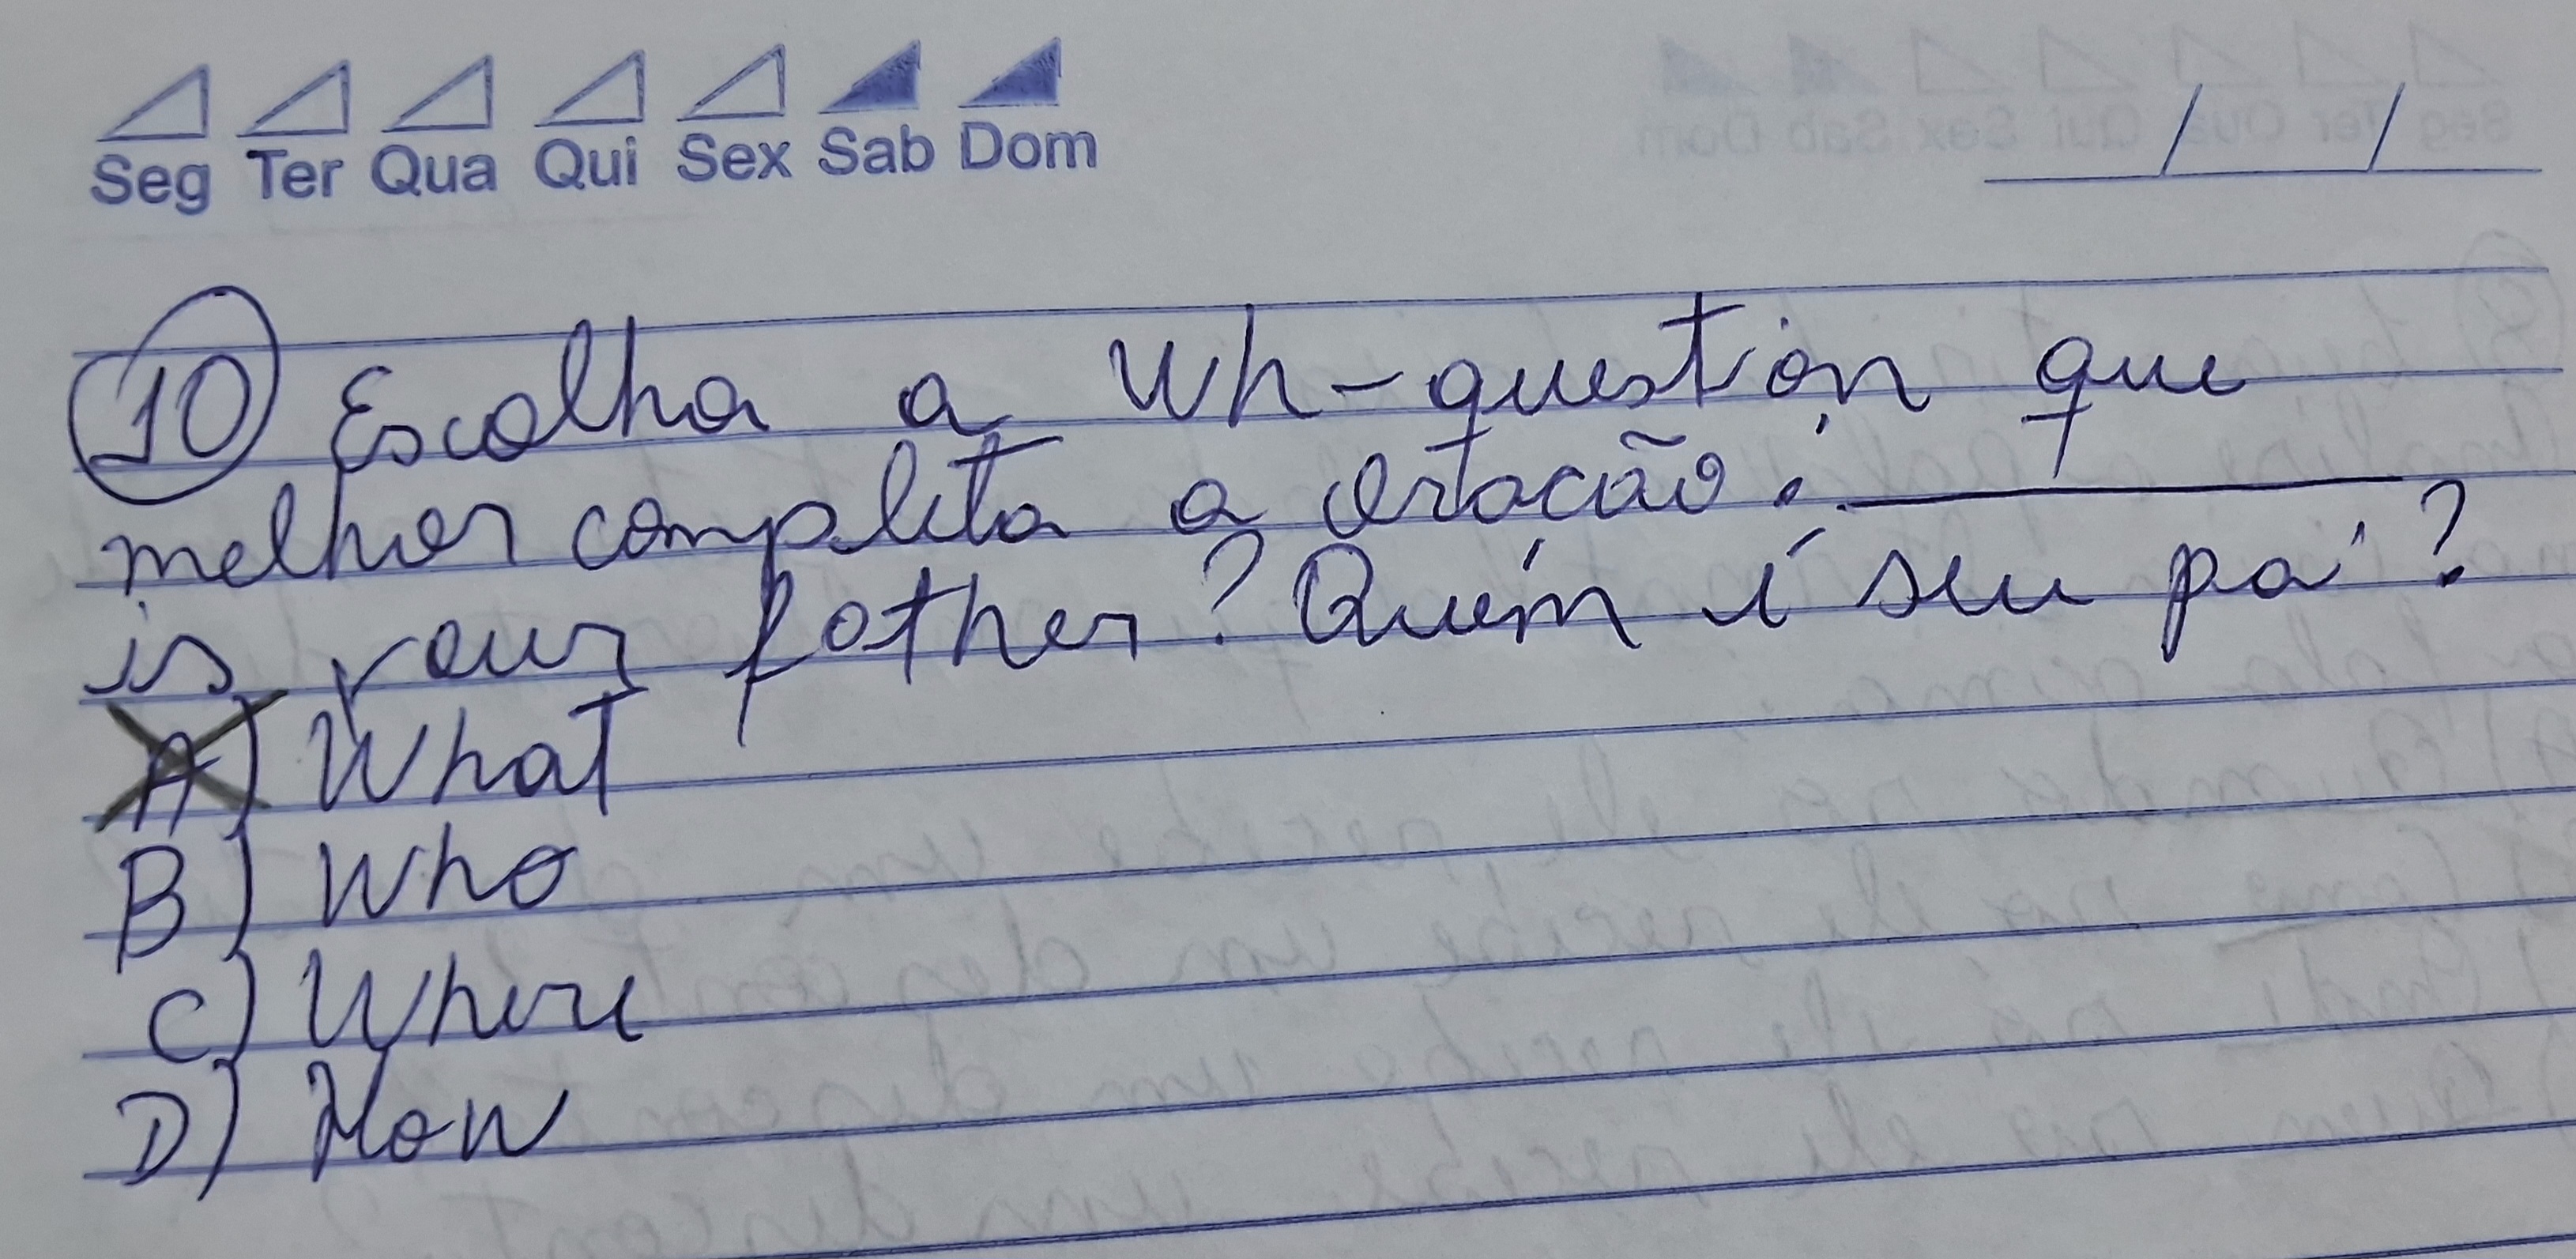 Seg Ter Qua Qui Sex Sab Dom
/ /
10 Escolha a Wh-question que
melhor completa a oração: ________
is your father? Quem é seu pai?
A) What
B) Who
C) Where
D) How